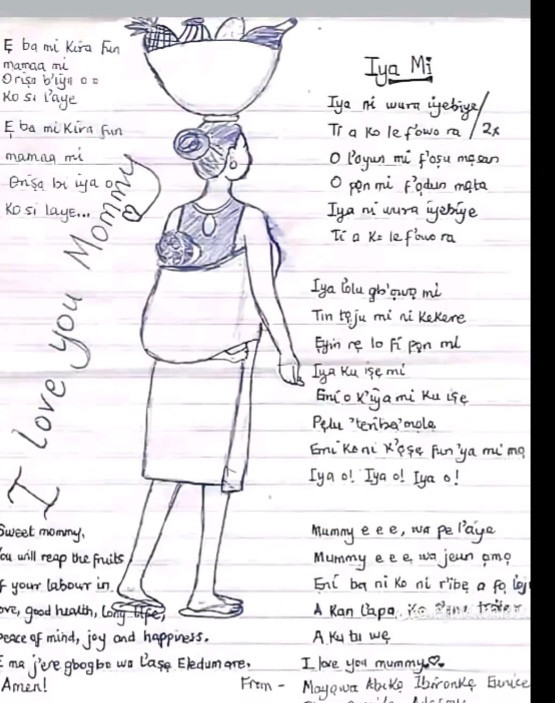 Ẹ ba mi Kira fun
mamaa mi
Oriṣa b'iya o o
Ko si l'aye
Ẹ ba mi Kira fun
mamaa mi
Oriṣa bi iya o
Ko si laye...
I love you Mommy
Sweet mommy,
You will reap the fruits
of your labour in
love, good health, long life,
peace of mind, joy and happiness.
E ma j'ere gbogbo wa l'aṣẹ Eledumare.
Amen!
Iya Mi
Iya ni wura iyebiye
Ti a ko le f'owo ra / 2x
O l'oyun mi f'oṣu mẹsan
O pọn mi f'ọdun mẹta
Iya ni wura iyebiye
Ti a ko le f'owo ra
Iya l'olu gb'ọwọ mi
Tin tọju mi ni kekere
Ẹyin rẹ lo fi pọn mi
Iya Ku iṣẹ mi
Emi o k'iya mi Ku iṣẹ
Pẹlu 'teriba'mọlẹ
Emi Ko ni K'ọṣẹ fun 'ya mi mọ
Iya o! Iya o! Iya o!
Mummy e e e, wa pe l'aye
Mummy e e e, wa jeun ọmọ
Eni ba ni Ko ni r'ibe a fọ loju
A Kan l'apa,
A Ku tu wẹ
I love you mummy
From - Mayowa Abikẹ Ibironkẹ Eunice